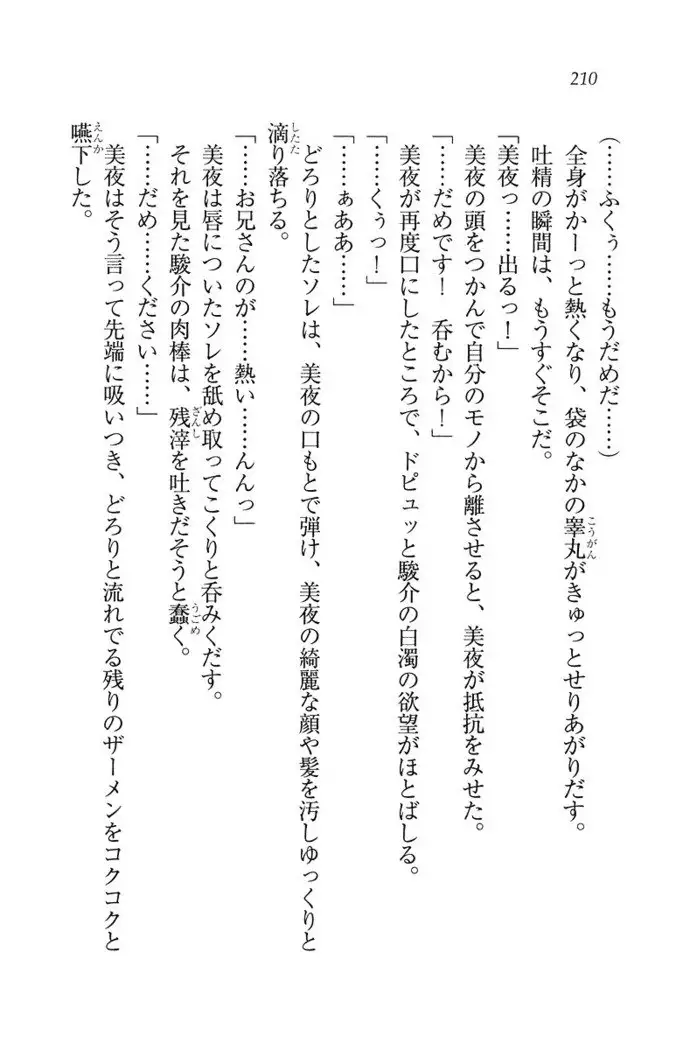 210
(……ふくぅ……もうだめだ……)
全身がかーっと熱くなり、袋のなかの睾丸がきゅっとせりあがりだす。
こうがん
吐精の瞬間は、もうすぐそこだ。
「美夜っ……出るっ！」
美夜の頭をつかんで自分のモノから離させると、美夜が抵抗をみせた。
「……だめです！　呑むから！」
美夜が再度口にしたところで、ドピュッと駿介の白濁の欲望がほとばしる。
「……くぅっ！」
「……ぁああ……」
どろりとしたソレは、美夜の口もとで弾け、美夜の綺麗な顔や髪を汚しゆっくりと
滴り落ちる。
したた
「……お兄さんのが……熱い……んんっ」
美夜は唇についたソレを舐め取ってこくりと呑みくだす。
それを見た駿介の肉棒は、残滓を吐きだそうと蠢く。
ざんし
うごめ
「……だめ……ください……」
美夜はそう言って先端に吸いつき、どろりと流れでる残りのザーメンをコクコクと
嚥下した。
えんか